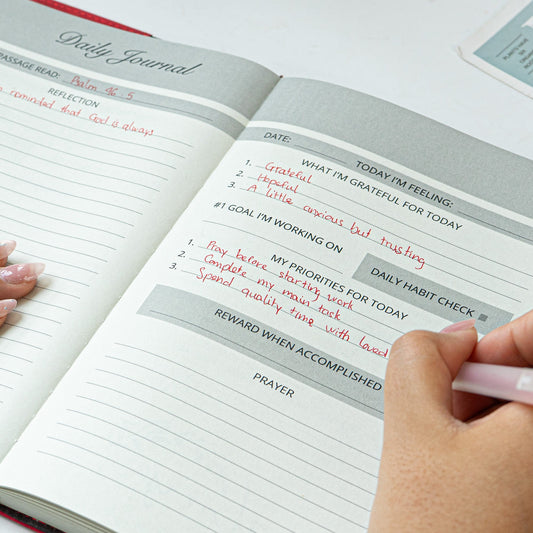 Daily Journal
PASSAGE READ: Psalm 46:5
REFLECTION
reminded that God is always
DATE:
TODAY I'M FEELING:
WHAT I'M GRATEFUL FOR TODAY
1. Grateful
2. Hopeful
3. A little anxious but trusting
#1 GOAL I'M WORKING ON
DAILY HABIT CHECK
MY PRIORITIES FOR TODAY
1. Pray before starting work
2. Complete my main task
3. Spend quality time with loved
REWARD WHEN ACCOMPLISHED
PRAYER